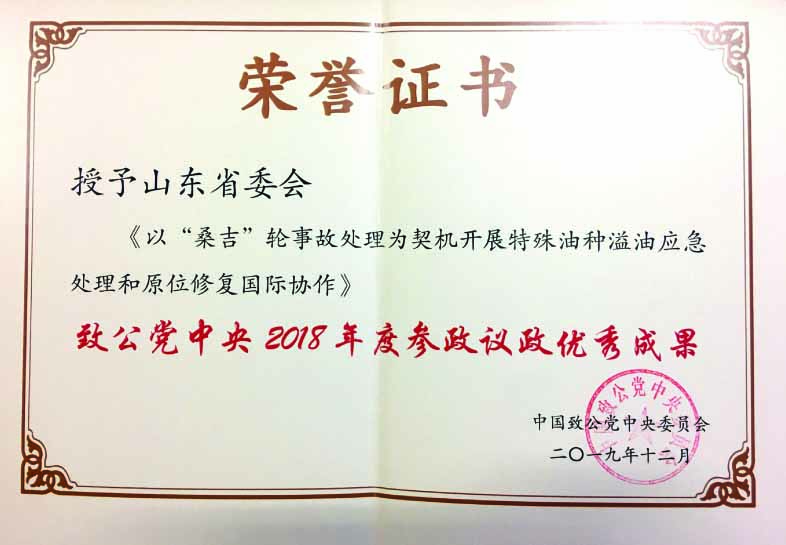 荣誉证书
授予山东省委会
《以“桑吉”轮事故处理为契机开展特殊油种溢油应急
处理和原位修复国际协作》
致公党中央2018年度参政议政优秀成果
中国致公党中央委员会
二〇一九年十二月